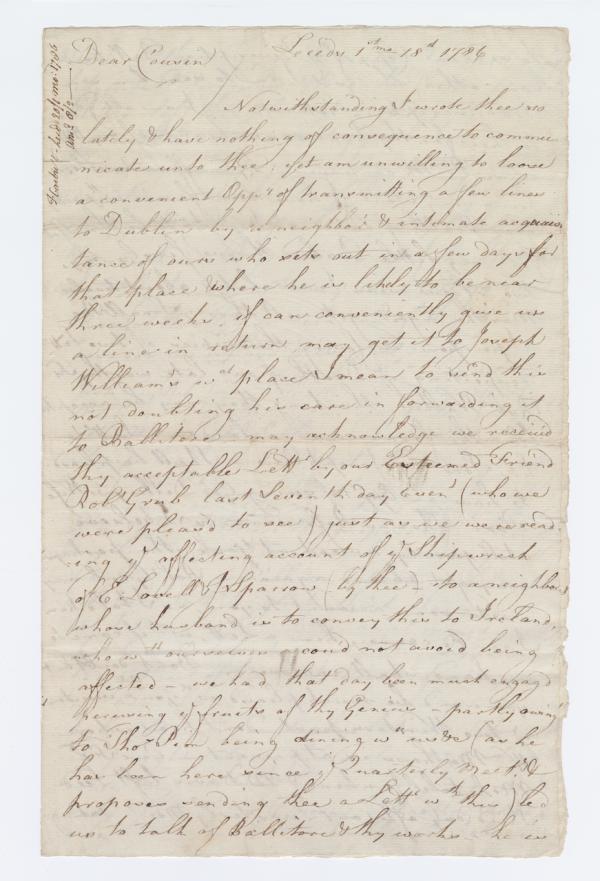 Dear Cousin Leeds 1st mo 18th 1786
Notwithstanding I wrote thee so
lately & have nothing of consequence to commu
nicate unto thee, yet am unwilling to loose
a convenient Oppy of transmitting a few lines
to Dublin by a neighbor & intimate acquain
tance of ours who sets out in a few days for
that place where he is likely to be near
three weeks, if can conveniently give us
a line in return may get it to Joseph
Williams's wch place I mean to send this
not doubting his care in forwarding it
to Ballitore - may acknowledge we received
thy acceptable Lettr by our Esteemed Friend
Robt Grub last Seventh day Even' (who we
were pleas'd to see) just as we were read-
ing ye affecting account of ye Shipwreck
of E Lovell & J Sparrow (by thee) - to a neighbor
whose husband is to convey this to Ireland,
who wth ourselves could not avoid being
affected - we had that day been much engag'd
perusing ye fruits of thy Genius - partly owing
to Thos Pim being dining wth us & (as he
has been here since ye Quarterly Meetg &
proposes sending thee a Lettr wth this) led
us to talk of Ballitore & thy works - he is
1786